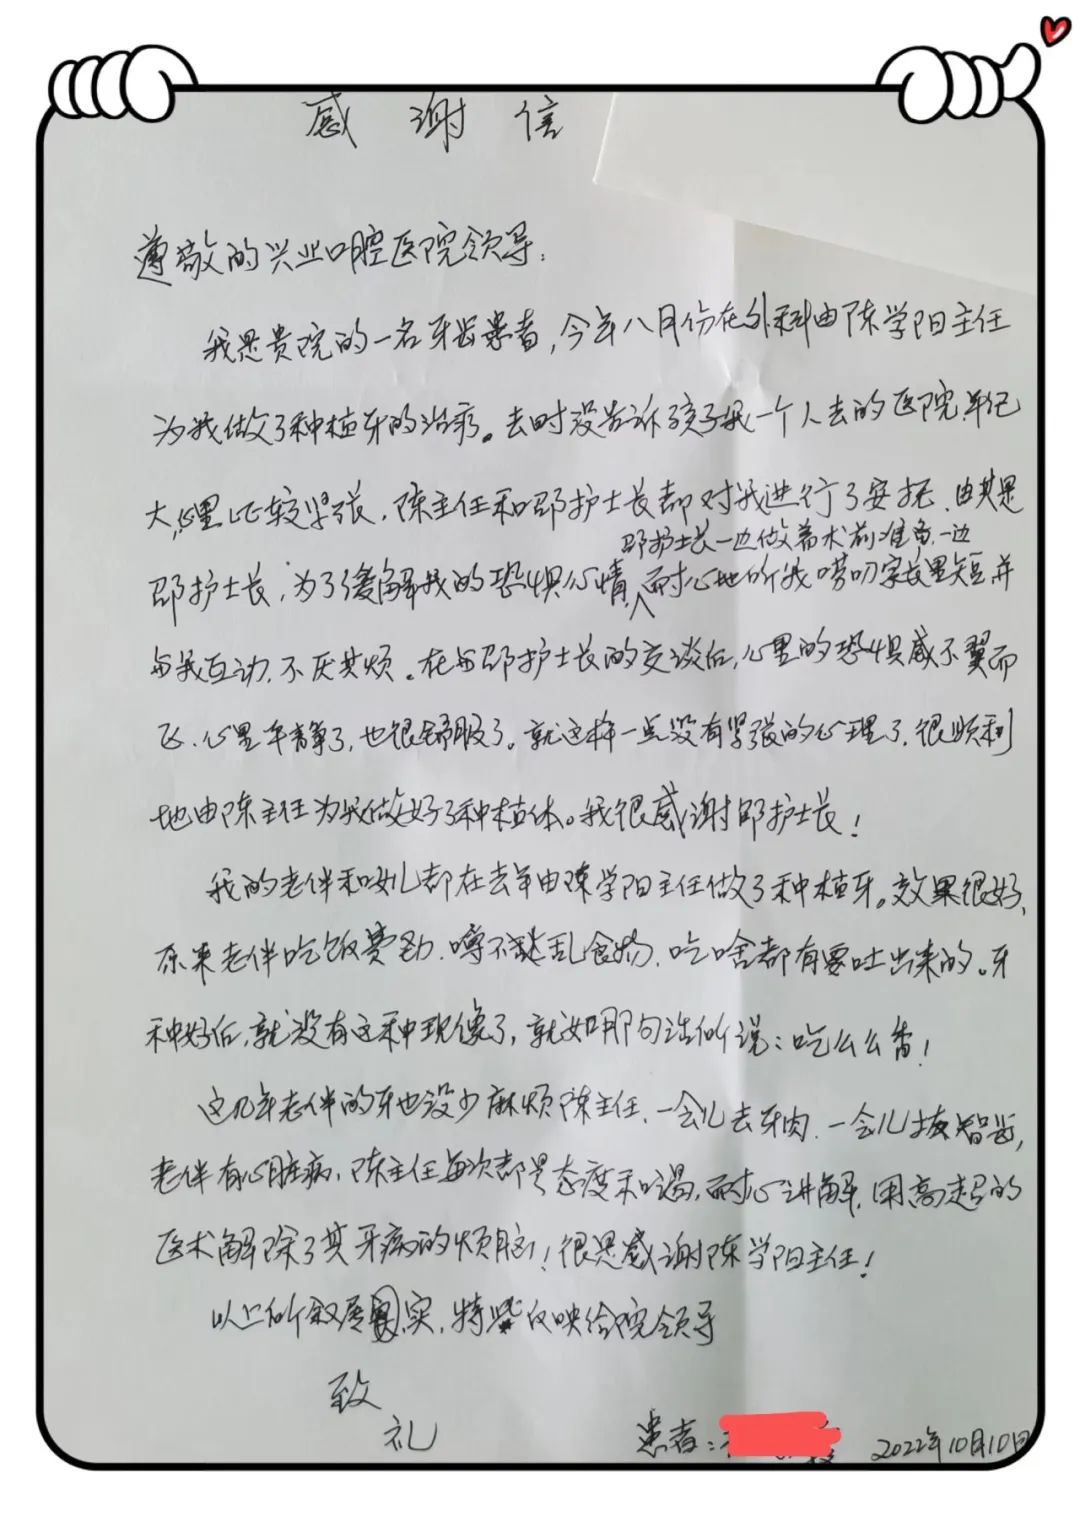 感 谢 信
尊敬的兴业口腔医院领导:
我是贵院的一名牙齿患者,今年八月份在外科由陈学阳主任
为我做了种植牙的治疗。去时没告诉孩子我一个人去的医院,年纪
大,心里比较紧张,陈主任和邵护士长都对我进行了安抚,由其是
邵护士长一边做着术前准备,一边
邵护士长,为了缓解我的恐惧心情,耐心地听我唠叨家长里短,并
与我互动,不厌其烦。在与邵护士长的交谈后,心里的恐惧感不翼而
飞,心里平静了,也很舒服了。就这样一点没有紧张的心理了,很顺利
地由陈主任为我做好了种植体。我很感谢邵护士长!
我的老伴和女儿都在去年由陈学阳主任做了种植牙。效果很好,
原来老伴吃饭费劲,嚼不乱食物,吃啥都有要吐出来的。牙
种好后,就没有这种现像了,就如那句话所说:吃么么香!
这几年老伴的牙也没少麻烦陈主任,一会儿去牙肉,一会儿拔智齿,
老伴有心脏病,陈主任每次都是态度和谒,耐心讲解,用高超的
医术解除了其牙病的烦脑!很是感谢陈学阳主任!
以上所叙属实,特此反映给院领导
致
礼
患者:
2022年10月10日